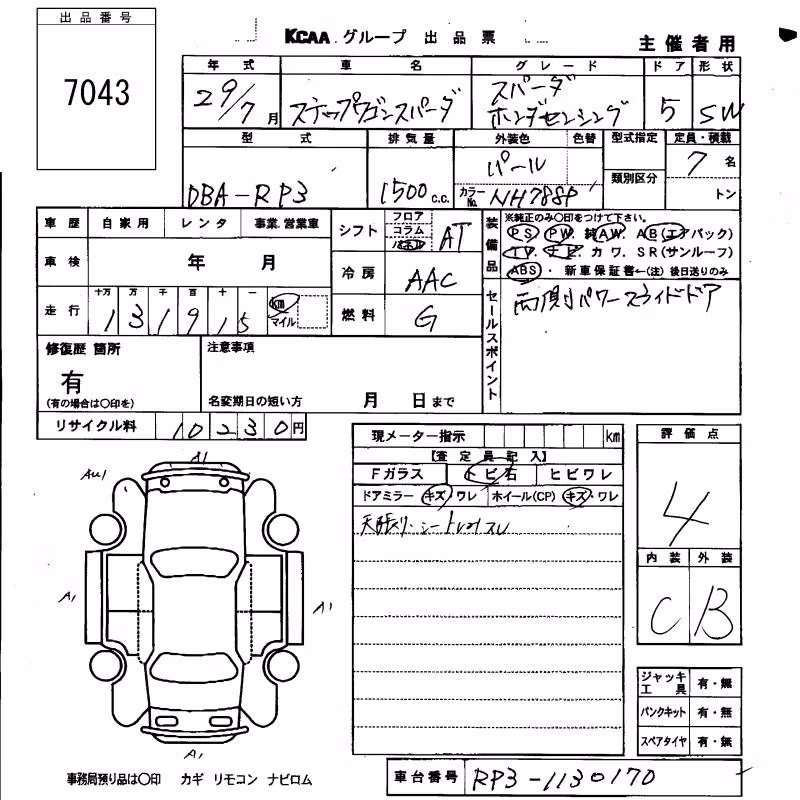 出品番号
7043
KCAA グループ 出品票
主催者用
年式 車名 グレード ドア 形状
29/7月 ステップワゴンスパーダ スパーダ ホンダセンシング 5 SW
型式 排気量 外装色 色替 型式指定 定員・積載
DBA-RP3 1500c.c. パール カラーNo. NH788P 類別区分 7名
トン
車歴 自家用 レンタ 事業.営業車 シフト フロア コラム AT
装備品 ※純正のみ〇印をつけて下さい。
PS PW. 純AW. AB(エアバック)
TV. ナビ カワ. SR(サンルーフ)
ABS. 新車保証書←(注) 後日送りのみ
車検 年 月 冷房 AAC
走行 十万 万 千 百 十 一
131915 km マイル 燃料 G
セールスポイント 両側パワースライドドア
修復歴 箇所 注意事項
有
(有の場合は〇印を) 名変期日の短い方 月 日まで
リサイクル料 10230円
現メーター指示 km
【査定員記入】
Fガラス トビ石 ヒビワレ
ドアミラー キズ・ワレ ホイール(CP) キズ・ワレ
天張り・シート
評価点
4
内装 外装
C B
A1
AU1
A1 A1
A1
ジャッキ工具 有・無
パンクキット 有・無
スペアタイヤ 有・無
事務局預り品は〇印 カギ リモコン ナビロム
車台番号 RP3-1130170